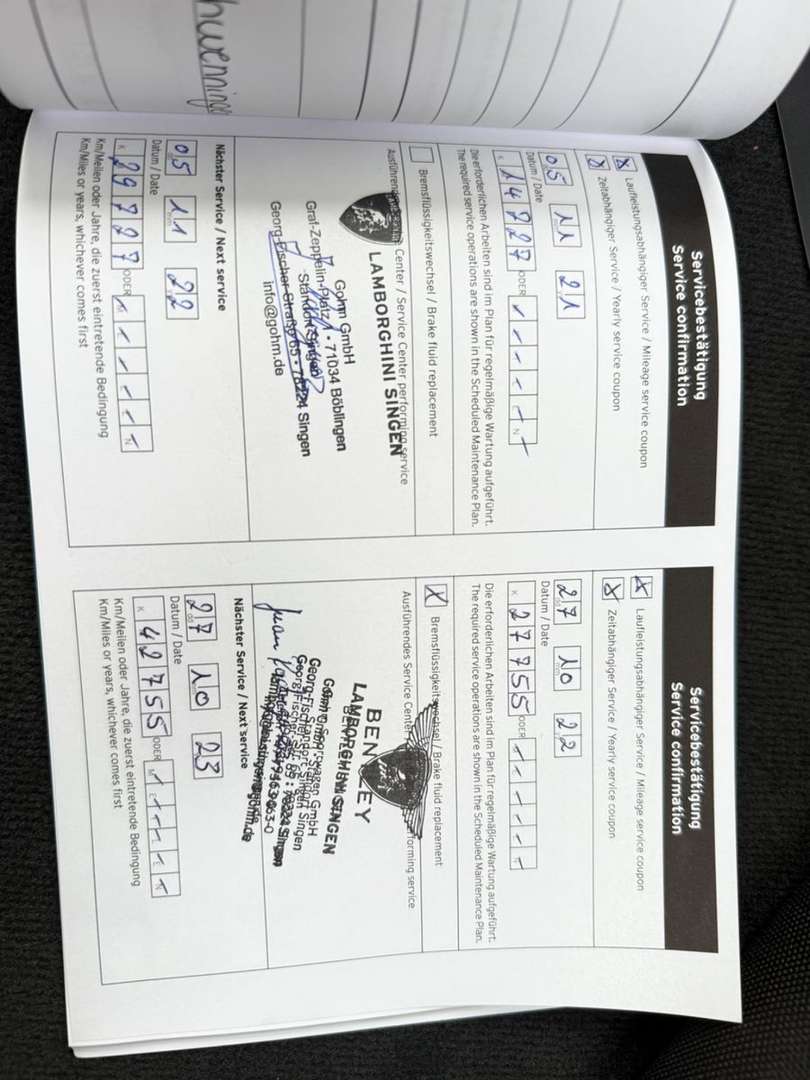 Servicebestätigung
Service confirmation
X Laufleistungsabhängiger Service / Mileage service coupon
X Zeitabhängiger Service / Yearly service coupon
05 11 21
Datum / Date
14727 ODER
Die erforderlichen Arbeiten sind im Plan für regelmäßige Wartung aufgeführt.
The required service operations are shown in the Scheduled Maintenance Plan.
Bremsflüssigkeitswechsel / Brake fluid replacement
Ausführendes Service Center / Service Center performing service
LAMBORGHINI SINGEN
Gohm GmbH
Graf-Zeppelin-Platz 1 • 71034 Böblingen
Standort Singen
Georg-Fischer-Straße 65 • 78224 Singen
info@gohm.de
Nächster Service / Next service
05 11 22
Datum / Date
29727 ODER
Km/Meilen oder Jahre, die zuerst eintretende Bedingung
Km/Miles or years, whichever comes first
Servicebestätigung
Service confirmation
X Laufleistungsabhängiger Service / Mileage service coupon
X Zeitabhängiger Service / Yearly service coupon
27 10 22
Datum / Date
27755 ODER
Die erforderlichen Arbeiten sind im Plan für regelmäßige Wartung aufgeführt.
The required service operations are shown in the Scheduled Maintenance Plan.
X Bremsflüssigkeitswechsel / Brake fluid replacement
Ausführendes Service Center performing service
BENTLEY
LAMBORGHINI SINGEN
Nächster Service / Next service
27 10 23
Datum / Date
42755 ODER
Km/Meilen oder Jahre, die zuerst eintretende Bedingung
Km/Miles or years, whichever comes first